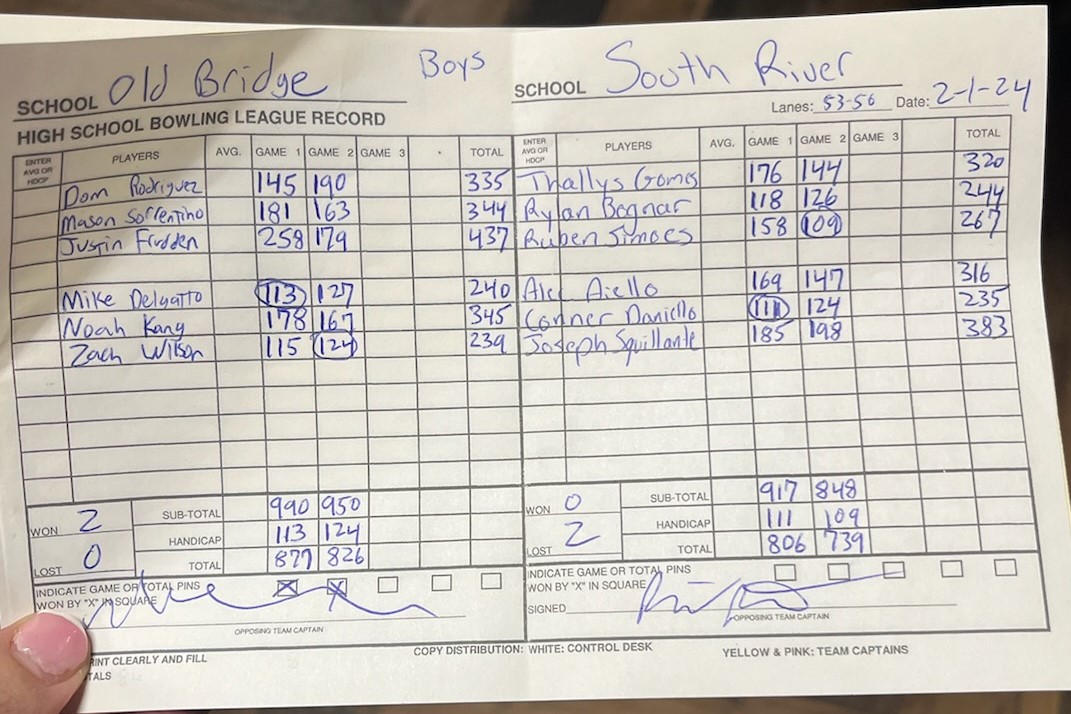 SCHOOL Old Bridge Boys
SCHOOL South River
HIGH SCHOOL BOWLING LEAGUE RECORD
Lanes: 53-56 Date: 2-1-24
ENTER AVG OR HDCP PLAYERS AVG. GAME 1 GAME 2 GAME 3 TOTAL
ENTER AVG OR HDCP PLAYERS AVG. GAME 1 GAME 2 GAME 3 TOTAL
Dom Rodriguez 145 190 335
Mason Sorrentino 181 163 344
Justin Frudden 258 179 437
Mike Delgatto 113 127 240
Noah Kang 178 167 345
Zach Wilson 115 124 239
Thallys Gomes 176 144 320
Rylan Bognar 118 126 244
Ruben Simoes 158 109 267
Alec Aiello 169 147 316
Conner Daniello 111 124 235
Joseph Squillante 185 198 383
WON 2
LOST 0
SUB-TOTAL 990 950
HANDICAP 113 124
TOTAL 877 826
INDICATE GAME OR TOTAL PINS
WON BY "X" IN SQUARE
OPPOSING TEAM CAPTAIN
WON 0
LOST 2
SUB-TOTAL 917 848
HANDICAP 111 109
TOTAL 806 739
INDICATE GAME OR TOTAL PINS
WON BY "X" IN SQUARE
SIGNED
OPPOSING TEAM CAPTAIN
RINT CLEARLY AND FILL
TALS
COPY DISTRIBUTION: WHITE: CONTROL DESK YELLOW & PINK: TEAM CAPTAINS